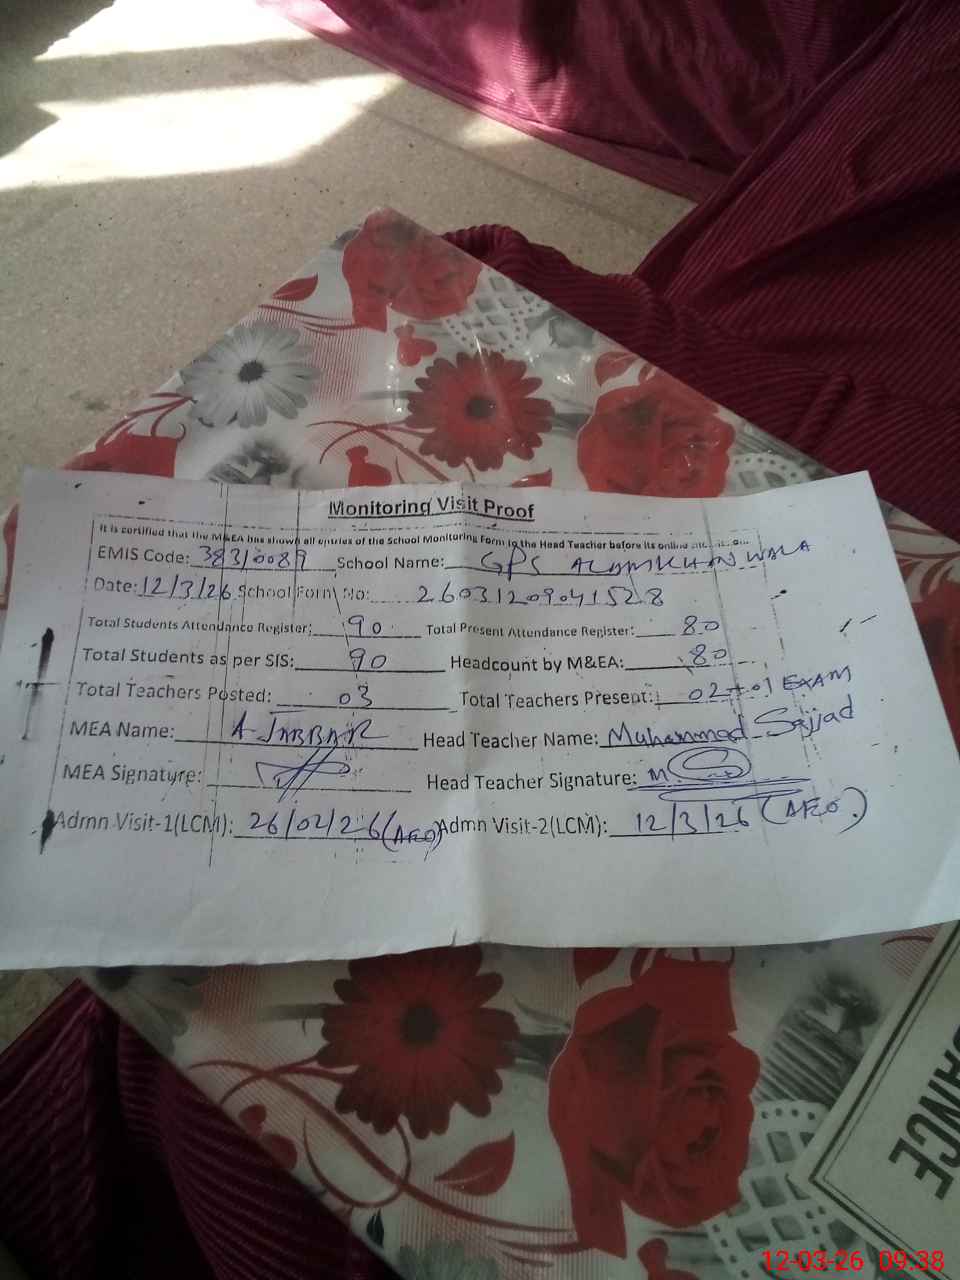 Monitoring Visit Proof
It is certified that the M&EA has shown all entries of the School Monitoring Form to the Head Teacher before its online
EMIS Code: 38310089 School Name: GPS ALAMKHANWALA
Date: 12/3/26 School Form No: 26031209041528
Total Students Attendance Register: 90 Total Present Attendance Register: 80
Total Students as per SIS: 90 Headcount by M&EA: 80
Total Teachers Posted: 03 Total Teachers Present: 02+01 EXAM
MEA Name: A JABBAR Head Teacher Name: Muhammad Sajjad
MEA Signature: Head Teacher Signature: M.
Admn Visit-1(LCM): 26/02/26 (AEO) Admn Visit-2(LCM): 12/3/26 (AEO).
ANCE
12-03-26 09:38